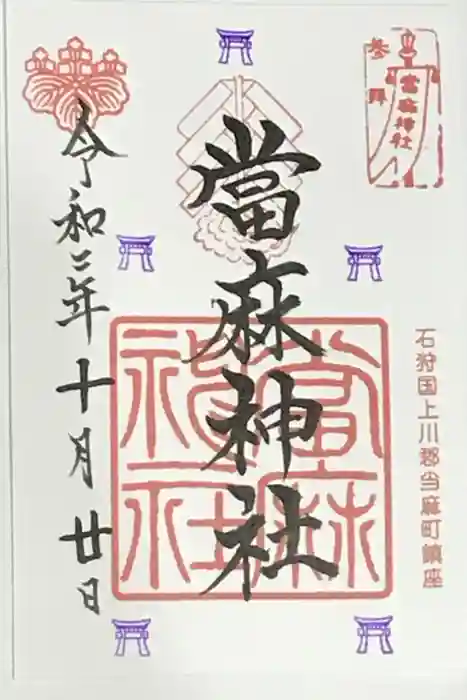 参拝
當麻神社
石狩国上川郡当麻町鎮座
當麻神社
當麻神社
令和三年十月廿日